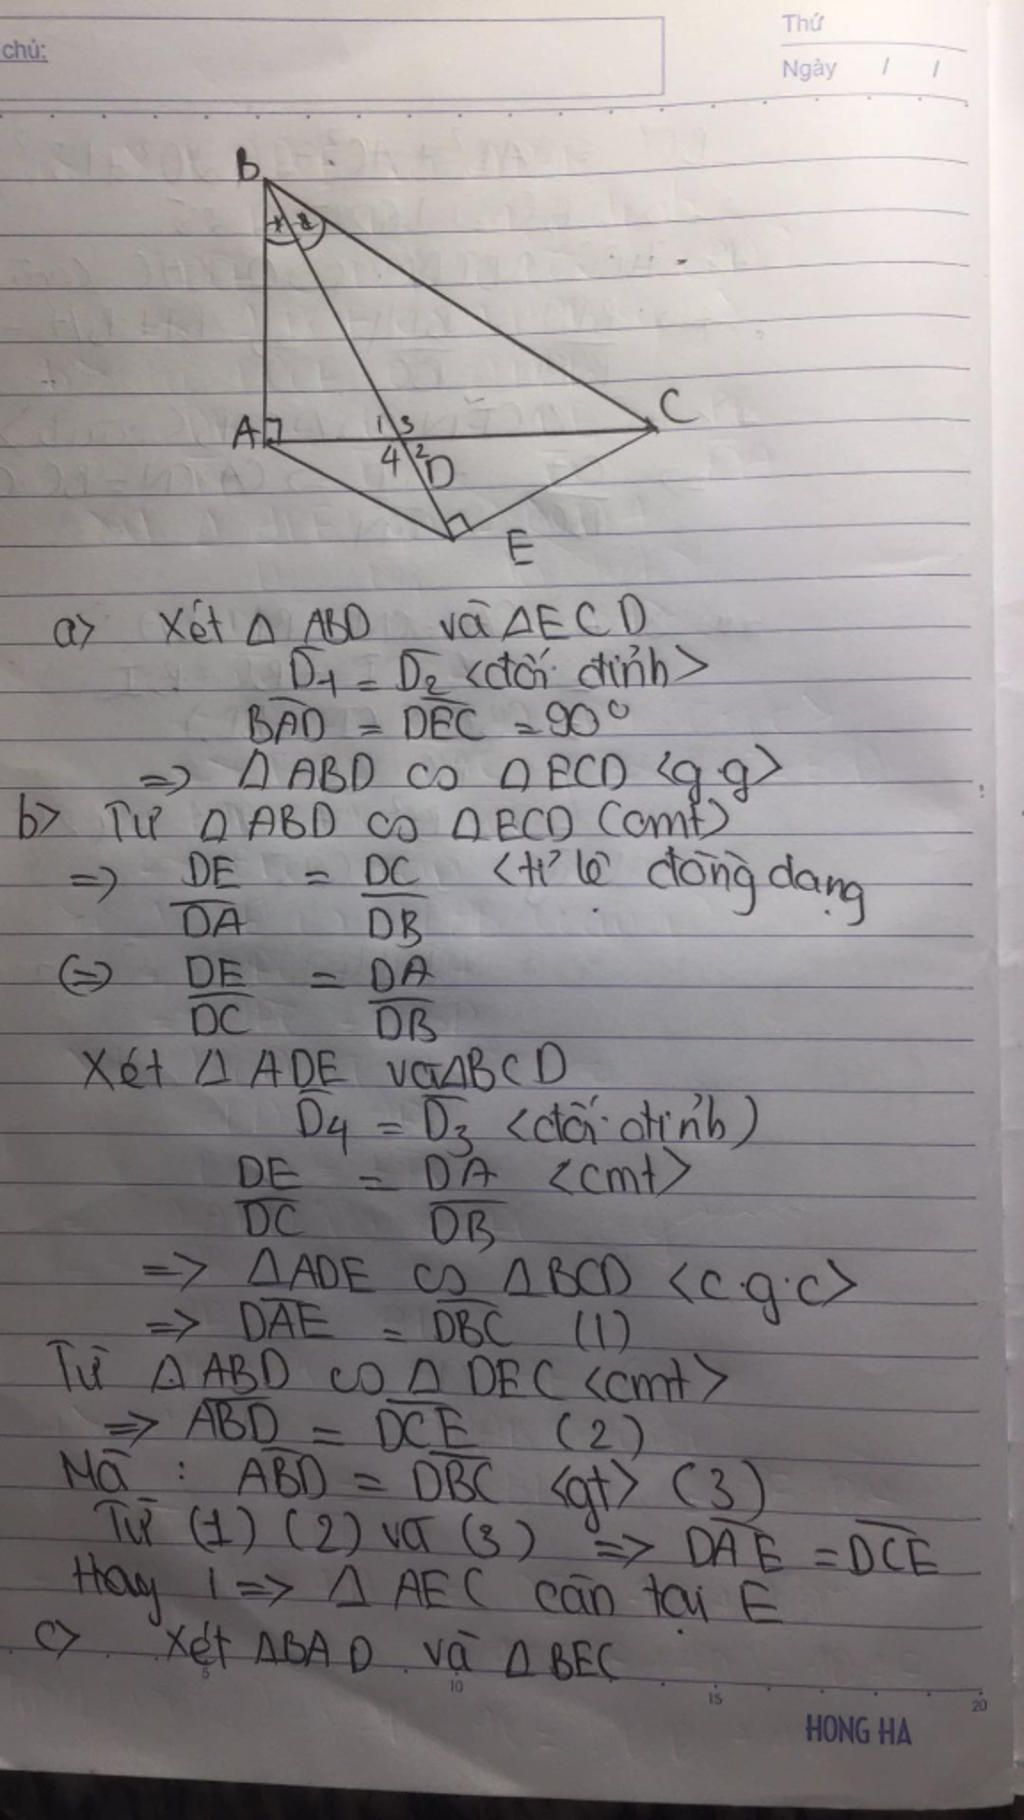 chú:
Thứ
Ngày / /
B
1 2
A
1 3
C
4 2
D
E
a> Xét Δ ABD và ΔECD
D1 = D2 <đối đỉnh>
BAD = DEC = 90°
=> Δ ABD ∽ Δ ECD <g.g>
b> Từ Δ ABD ∽ Δ ECD (cmt>
=> DE/DA = DC/DB <tỉ lệ đồng dạng
(=> DE/DC = DA/DB
Xét Δ ADE và ΔBCD
D4 = D3 <đối đỉnh)
DE/DC = DA/DB <cmt>
=> ΔADE ∽ ΔBCD <c.g.c>
=> DAE = DBC (1)
Từ Δ ABD ∽ Δ DEC <cmt>
=> ABD = DCE (2)
Mà : ABD = DBC <gt> (3)
Từ (1) (2) và (3) => DAE = DCE
Hay 1 => Δ AEC cân tại E
c> Xét ΔBAD và ΔBEC
5 10 15 20
HONG HA